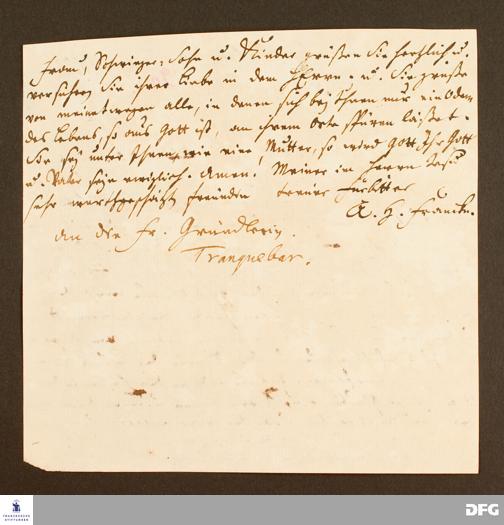 Frau, Schwieger-Sohn u. Kinder grüßen Sie hertzlich u.
versichern Sie ihrer Liebe in dem HErrn. u. Sie grüße
von meinetwegen alle, in denen sich bey Ihnen nur ein Odem
des Lebens, so aus Gott ist, an ihrem Orte spüren läßet.
Sie sey unter Ihnen wie eine Mutter, so wird Gott Ihr Gott
u. Vater seyn ewiglich. Amen. Meiner im Herrn Jesu
sehr werthgeschätzten Freundin treuer Fürbitter
A. H. Francke.
An die Fr. Gründlerin.
Tranquebar.
FRANCKESCHE
STIFTUNGEN
DFG